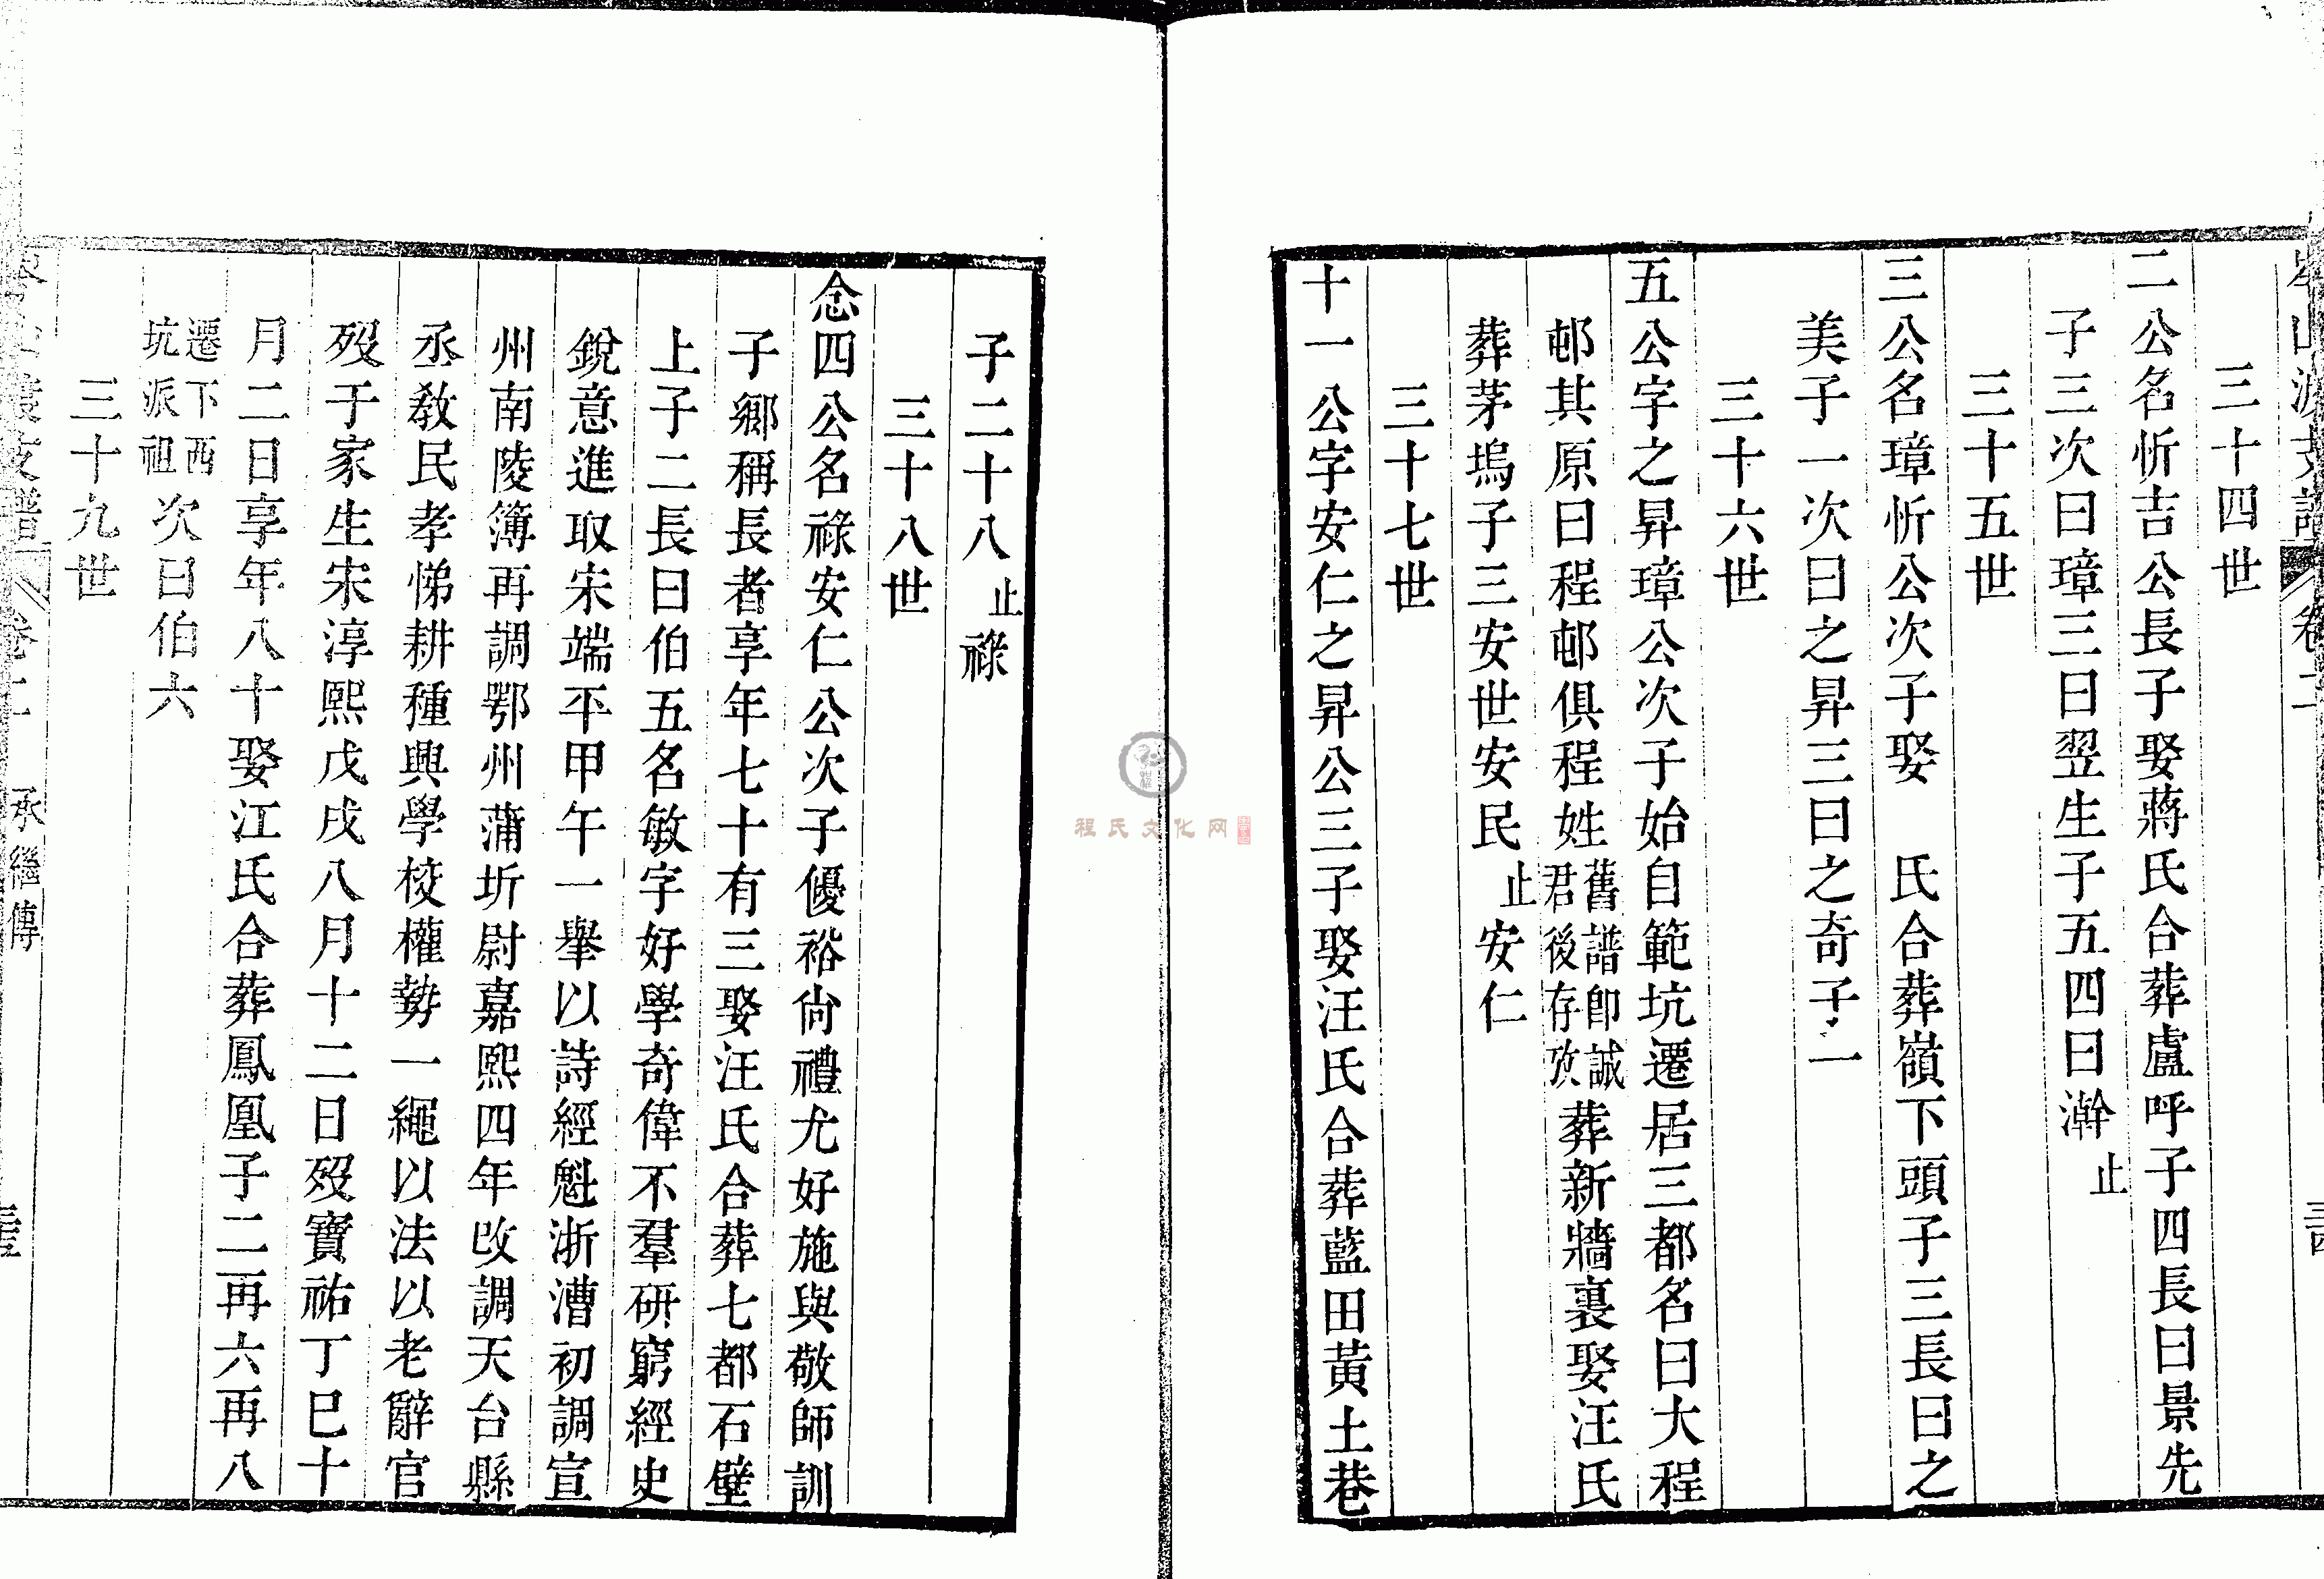 三十四世
二公名忻吉公長子娶蔣氏合葬盧呼子四長曰景先
子三次曰璋三曰翌生子五四曰澣止
三十五世
三公名璋忻公次子娶 氏合葬嶺下頭子三長曰之
美子一次曰之昇三曰之奇子一
三十六世
五公字之昇璋公次子始自範坑遷居三都名曰大程
邨其原曰程邨俱程姓舊譜卽誠君後存攷葬新牆裏娶汪氏
葬茅塢子三安世安民止安仁
三十七世
十一公字安仁之昇公三子娶汪氏合葬藍田黃土巷
子二十八止祿
三十八世
念四公名祿安仁公次子優裕尙禮尤好施與敬師訓
子鄉稱長者享年七十有三娶汪氏合葬七都石壁
上子二長曰伯五名敏字好學奇偉不羣硏窮經史
銳意進取宋端平甲午一舉以詩經魁浙漕初調宣
州南陵簿再調鄂州蒲圻尉嘉熙四年改調天台縣
丞教民孝悌耕種興學校權勢一繩以法以老辭官
歿于家生宋淳熙戊戌八月十二日歿寶祐丁巳十
月二日享年八十娶江氏合葬鳳凰子二再六再八
遷下西坑派祖次曰伯六
三十九世
卷二
承繼傳
程氏文化网